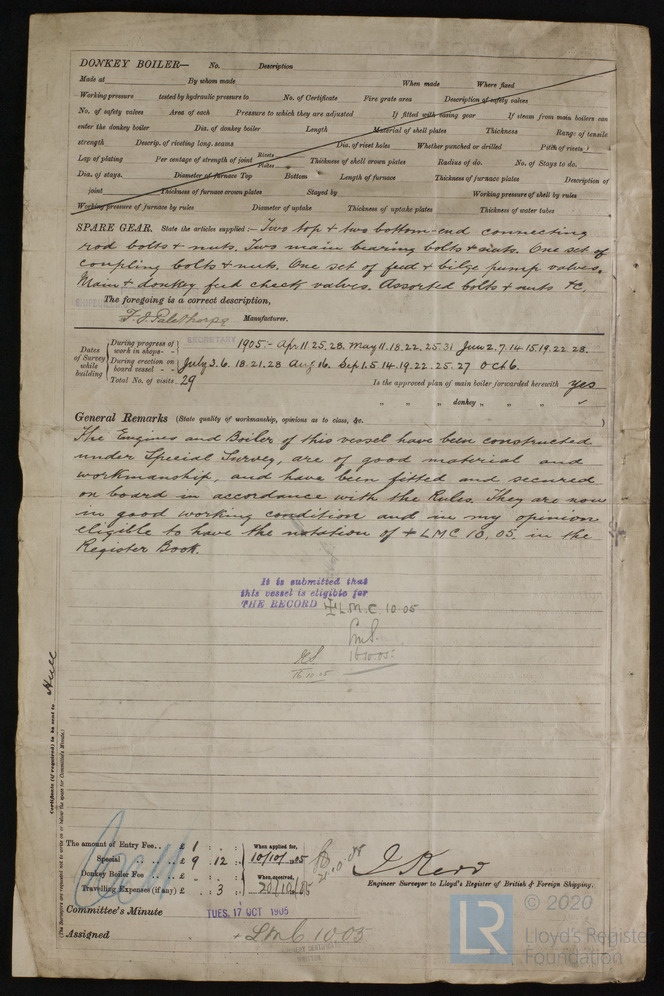 DONKEY BOILER— No. Description
Made at By whom made When made Where fixed
Working pressure tested by hydraulic pressure to No. of Certificate Fire grate area Description of safety valves
No. of safety valves Area of each Pressure to which they are adjusted If fitted with easing gear If steam from main boilers can
enter the donkey boiler Dia. of donkey boiler Length Material of shell plates Thickness Range of tensile
strength Descrip. of riveting long. seams Dia. of rivet holes Whether punched or drilled Pitch of rivets
Lap of plating Per centage of strength of joint Rivets Plates Thickness of shell crown plates Radius of do. No. of Stays to do.
Dia. of stays. Diameter of furnace Top Bottom Length of furnace Thickness of furnace plates Description of
joint Thickness of furnace crown plates Stayed by Working pressure of shell by rules
Working pressure of furnace by rules Diameter of uptake Thickness of uptake plates Thickness of water tubes
SPARE GEAR. State the articles supplied:— Two top & two bottom-end connecting
rod bolts & nuts. Two main bearing bolts & nuts. One set of
coupling bolts & nuts. One set of feed & bilge pump valves.
Main & donkey feed check valves. Assorted bolts & nuts &c.
The foregoing is a correct description,
Manufacturer.
SECRETARY
Dates of Survey while building
During progress of work in shops - - 1905:- Apr 11 25. 28. May 11. 18. 22. 25. 31 June 2. 7. 14. 15. 19. 22. 28.
During erection on board vessel - - July 3. 6. 18. 21. 28 Aug 16. Sep 1. 5. 14. 19. 22. 25. 27 Oct 6.
Total No. of visits 29 Is the approved plan of main boiler forwarded herewith yes
" " " donkey " " "
General Remarks (State quality of workmanship, opinions as to class, &c.
The Engines and Boiler of this vessel have been constructed
under Special Survey, are of good material and
workmanship, and have been fitted and secured
on board in accordance with the Rules. They are now
in good working condition and in my opinion
eligible to have the notation of + LMC 10. 05. in the
Register Book.
It is submitted that
this vessel is eligible for
THE RECORD + L.M.C. 10.05
16.10.05
16.10.05
Certificate (if required) to be sent to Hull
(The Surveyors are requested not to write on or below the space for Committee's Minute.)
The amount of Entry Fee.. £ 1 : : When applied for,
Special .. .. .. £ 9 : 12 : 10/10/05
Donkey Boiler Fee .. .. £ : : When received,
Travelling Expenses (if any) £ : 3 : 20/10/05
21.10.05
Engineer Surveyor to Lloyd's Register of British & Foreign Shipping.
Committee's Minute TUES. 17 OCT 1905
Assigned + LMC 10.05
© 2020
Lloyd's Register
Foundation
LR